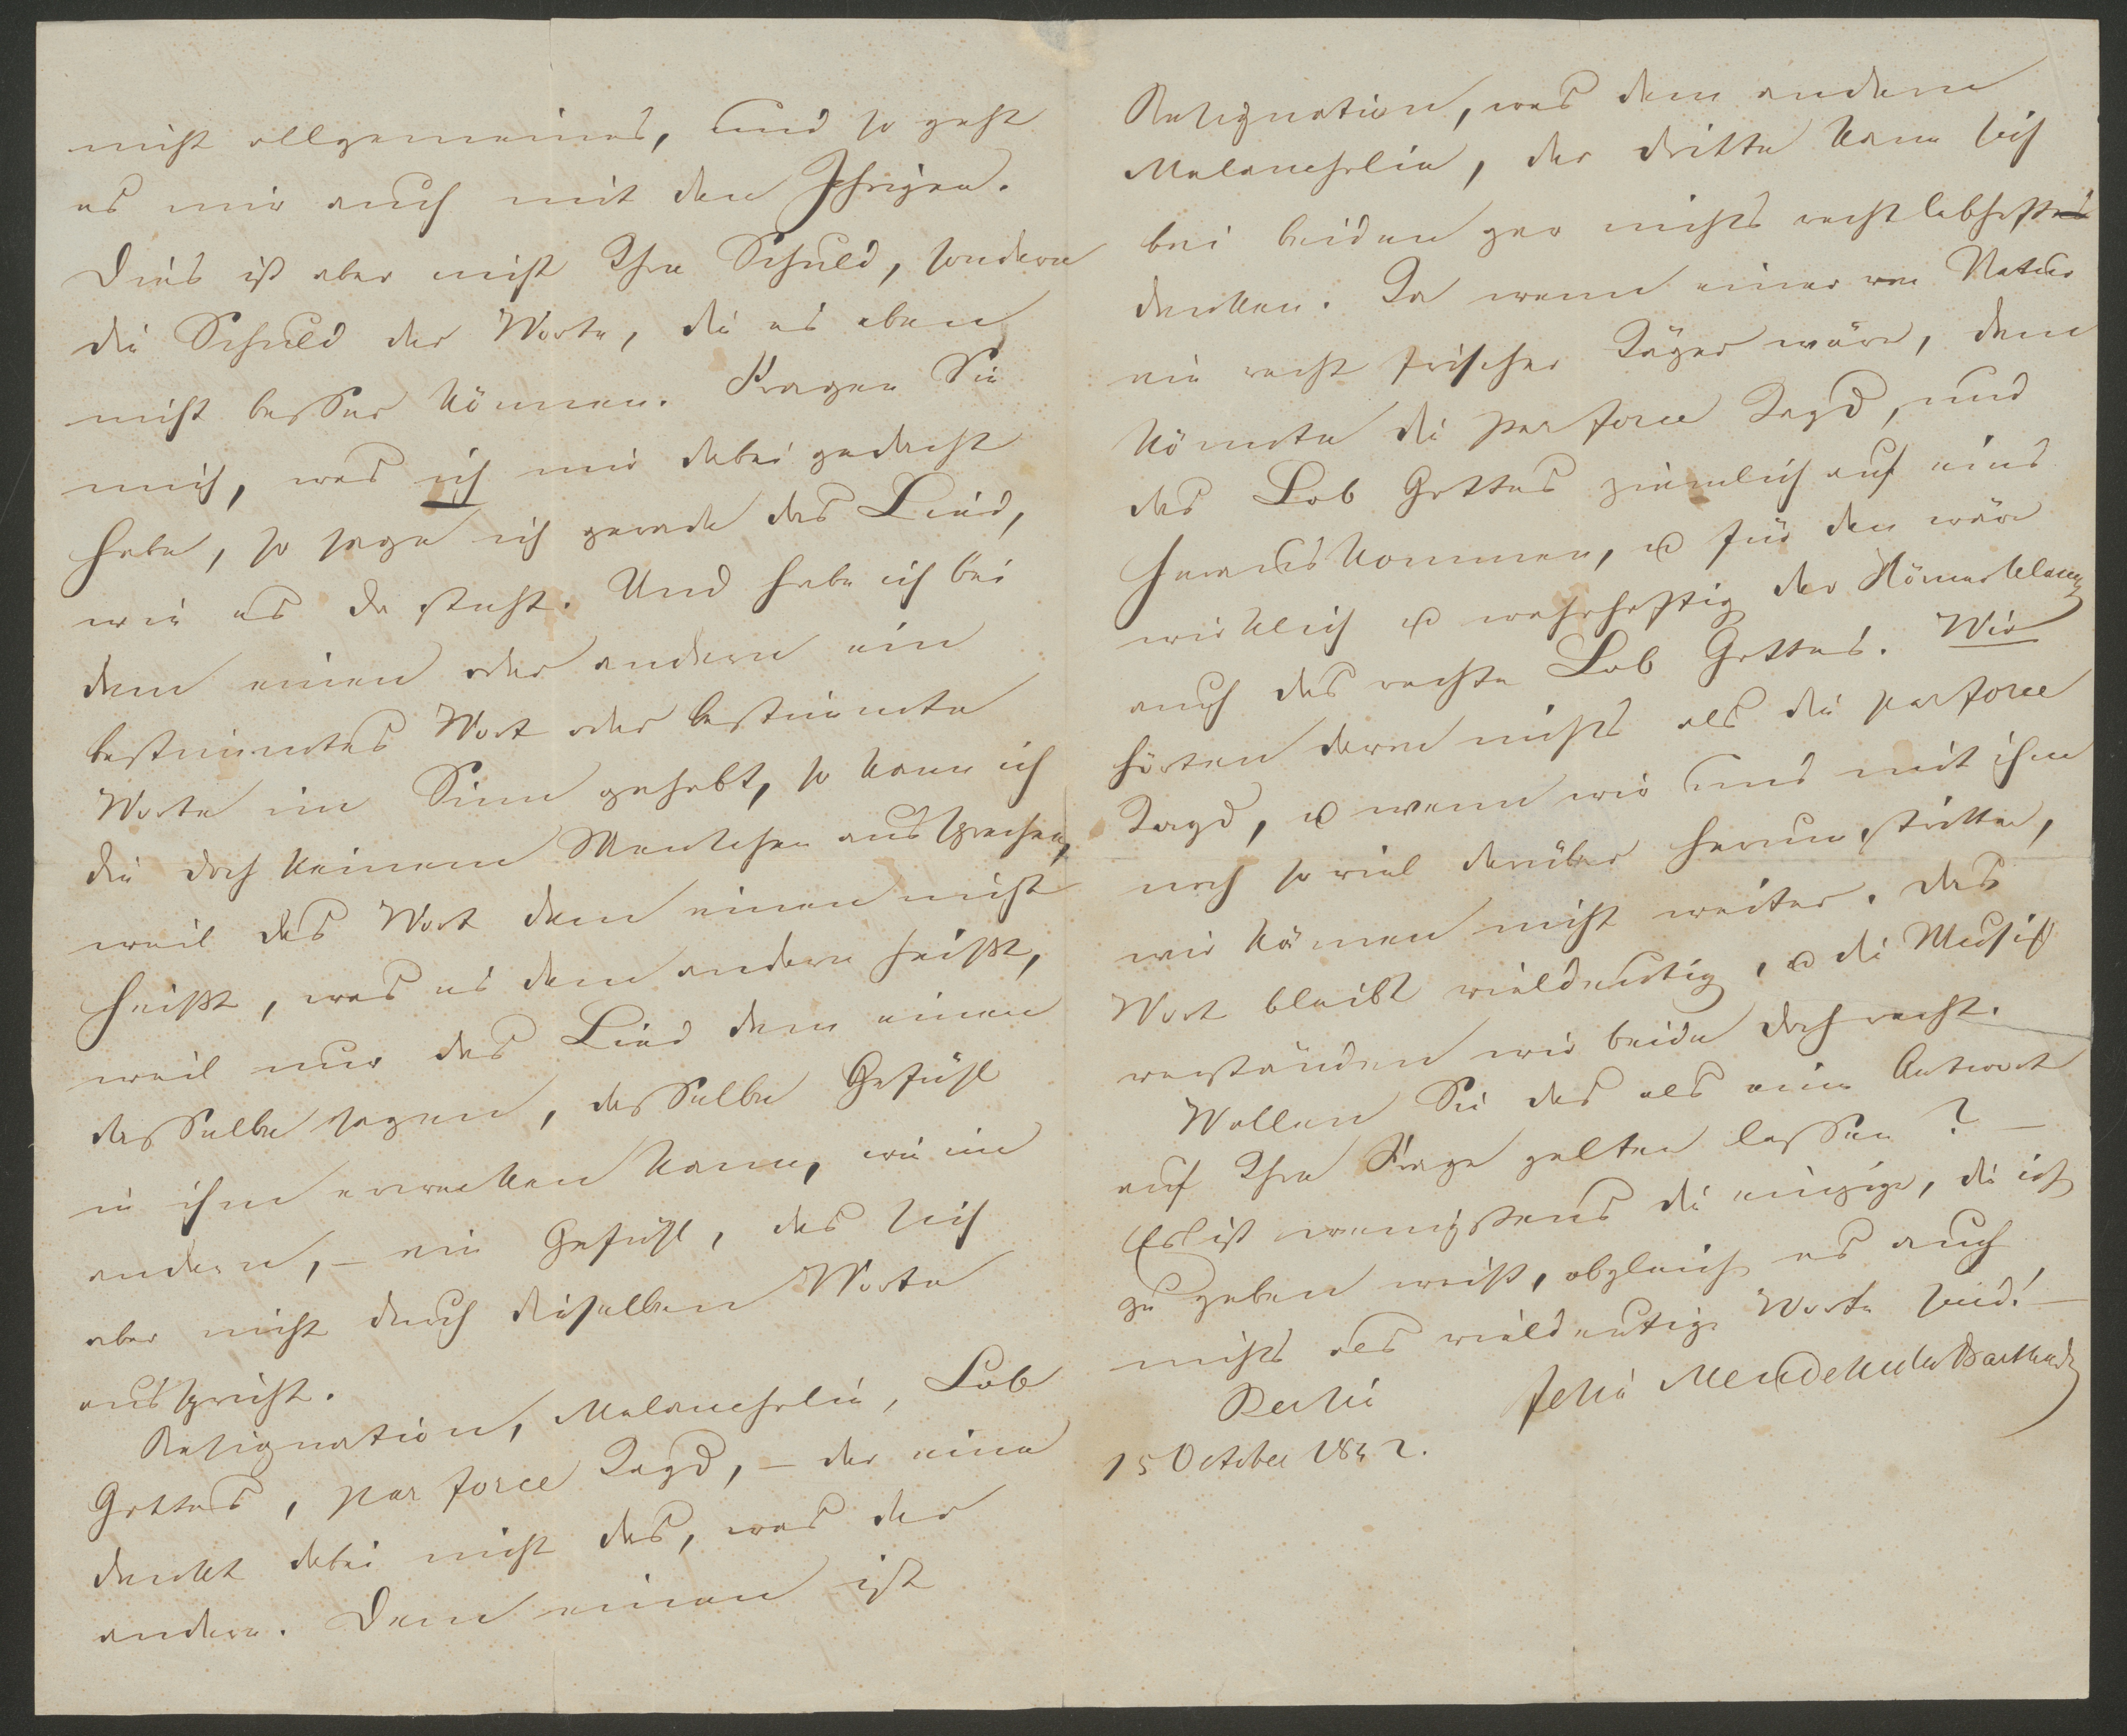 nicht allgemeines, und so geht
es mir auch mit den Ihrigen.
Dies ist aber nicht Ihre Schuld, sondern
die Schuld der Worte, die es eben
nicht besser können. Fragen Sie
mich, was ich mir dabei gedacht
habe, so sage ich gerade das Lied,
wie es da steht. Und habe ich bei
dem einen oder andern ein
bestimmtes Wort oder bestimmte
Worte im Sinn gehabt, so kann ich
die doch keinem Menschen aussprechen,
weil das Wort dem einen nicht
heißt, was es dem andern heißt,
weil nur das Lied dem einen
dasselbe sagen, dasselbe Gefühl
in ihm erwecken kann, wie im
andern, – ein Gefühl, das sich
aber nicht durch dieselben Worte
ausspricht.
Resignation, Melancholie, Lob
Gottes, par force Jagd, – der eine
denkt dabei nicht das, was der
andere. Dem einen ist
Resignation, was dem andern
Melancholie, der dritte kann sich
bei beiden gar nichts recht lebhaftes
denken. Ja wenn einer von Natur
ein recht frischer Jäger wäre, dem
könnte die par force Jagd, und
das Lob Gottes ziemlich auf eins
herauskommen, u für den wäre
wirklich u wahrhaftig der Hörnerklang
auch das rechte Lob Gottes. Wir
hörten davon nichts als die parforce
Jagd, u wenn wir uns mit ihm
noch so viel darüber herumstritten,
wir kämen nicht weiter. Das
Wort bleibt vieldeutig, u die Musik
verständen wir beide doch recht.
Wollen Sie das als eine Antwort
auf Ihre Frage gelten lassen? –
Es ist wenigstens die einzige, die ich
zu geben weiß, obgleich es auch
nichts als vieldeutige Worte sind! –
Berlin Felix Mendelssohn Bartholdy
15 October 1842.